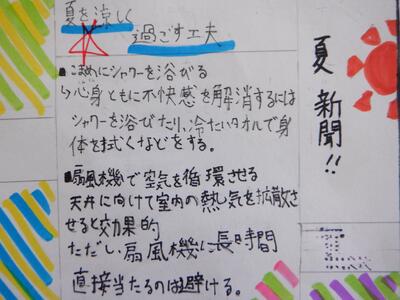 夏 新聞!!
夏を涼しく
過ごす工夫
■こまめにシャワーを浴びる
↳心身ともに不快感を解消するには
シャワーを浴びたり、冷たいタオルで身
体を拭くなどをする。
■扇風機で空気を循環させる
天井に向けて室内の熱気を拡散さ
せると効果的
ただし、扇風機に長時間
直接当たるのは避ける。